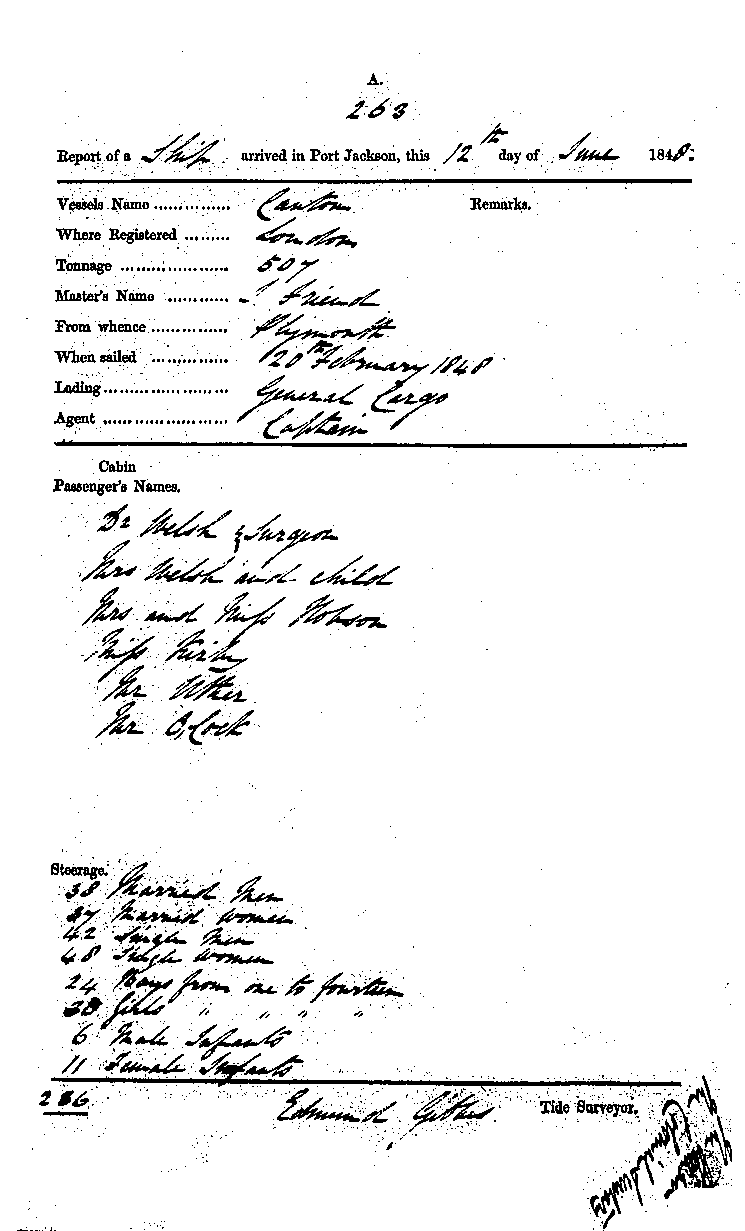 A.
263
Report of a Ship arrived in Port Jackson, this 12th day of June 1848.
Vessels Name .............. Canton Remarks.
Where Registered ......... London
Tonnage .................... 507
Master's Name ........... J Friend
From whence .............. Plymouth
When sailed .............. 20th February 1848
Lading....................... General Cargo
Agent ....................... Captain
Cabin
Passenger's Names.
Dr Welsh } Surgeon
Mrs Welsh and child
Mrs and Miss Hobson
Miss Kirby
Mr Uther
Mr Cock
Steerage.
38 Married Men
37 Married Women
42 Single Men
48 Single Women
24 Boys from one to fourteen
Girls " " " "
6 Male Infants
11 Female Infants
236
Edmund Gibbes Tide Surveyor.